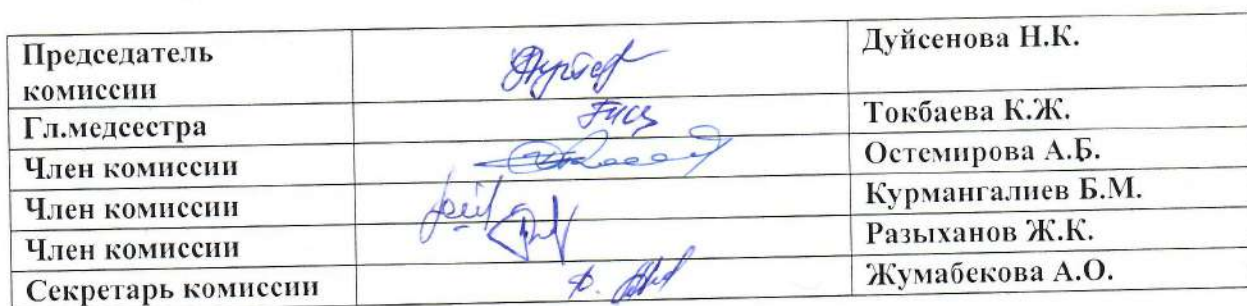 Председатель комиссии Дуйсенова Н.К.
Гл.медсестра Токбаева К.Ж.
Член комиссии Остемирова А.Б.
Член комиссии Курмангалиев Б.М.
Член комиссии Разыханов Ж.К.
Секретарь комиссии Жумабекова А.О.